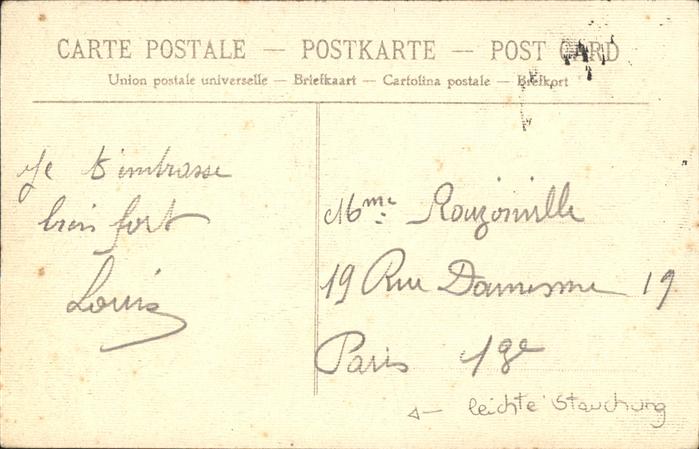 CARTE POSTALE — POSTKARTE — POST CARD
Union postale universelle — Briefkaart — Cartolina postale — Brefkort
Je t'embrasse
bien fort
Louis
Mme Rouzonville
19 Rue Damesme 19
Paris 19e
leichte Stauchung